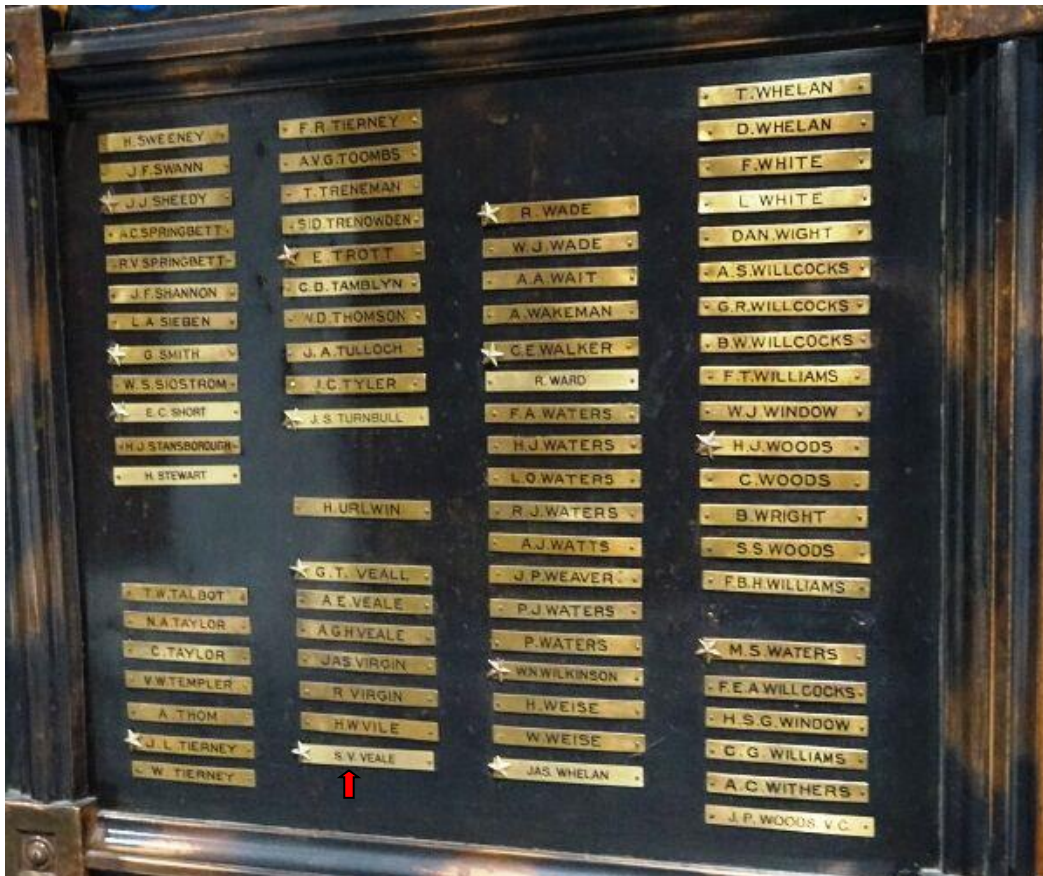 H. SWEENEY
J.F. SWANN
J.J. SHEEDY
A.C. SPRINGBETT
R.V. SPRINGBETT
J.F. SHANNON
L.A. SIEBEN
G. SMITH
W.S. SIOSTROM
E.C. SHORT
H.J. STANSBOROUGH
H. STEWART
T.W. TALBOT
N.A. TAYLOR
C. TAYLOR
V.W. TEMPLER
A. THOM
J.L. TIERNEY
W. TIERNEY
F.R. TIERNEY
A.V.G. TOOMBS
T. TRENEMAN
SID. TRENOWDEN
E. TROTT
C.D. TAMBLYN
W.D. THOMSON
J.A. TULLOCH
J.C. TYLER
J.S. TURNBULL
H. URLWIN
G.T. VEALL
A.E. VEALE
A.G.H VEALE
JAS. VIRGIN
R. VIRGIN
H.W VILE
S.V. VEALE
R. WADE
W.J. WADE
A.A. WAIT
A. WAKEMAN
C.E. WALKER
R. WARD
F.A. WATERS
H.J. WATERS
L.O. WATERS
R.J. WATERS
A.J. WATTS
J.P. WEAVER
P.J. WATERS
P. WATERS
W.N. WILKINSON
H. WEISE
W. WEISE
JAS. WHELAN
T. WHELAN
D. WHELAN
F. WHITE
L. WHITE
DAN. WIGHT
A.S. WILLCOCKS
G.R. WILLCOCKS
B.W. WILLCOCKS
F.T. WILLIAMS
W.J. WINDOW
H.J. WOODS
C. WOODS
B. WRIGHT
S.S. WOODS
F.B.H. WILLIAMS
M.S. WATERS
F.E.A. WILLCOCKS
H.S.G. WINDOW
C.G. WILLIAMS
A.C. WITHERS
J.P. WOODS. V.C.